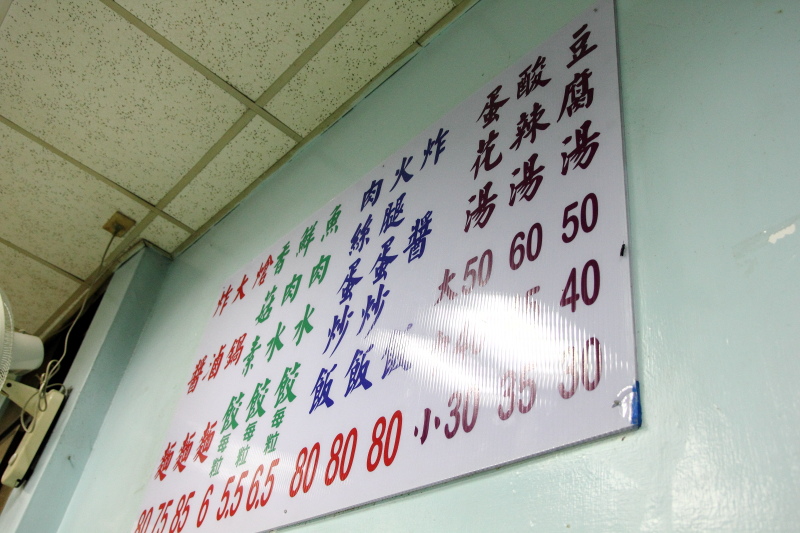 豆腐湯 50 40 30
酸辣湯 60 35
蛋花湯 大50 40 小30
炸醬飯 80
火腿蛋炒飯 80
肉絲蛋炒飯 80
魚肉水餃 每粒 6.5
鮮肉水餃 每粒 5.5
香菇素餃 每粒 6
熗鍋麵 85
大滷麵 75
炸醬麵 80